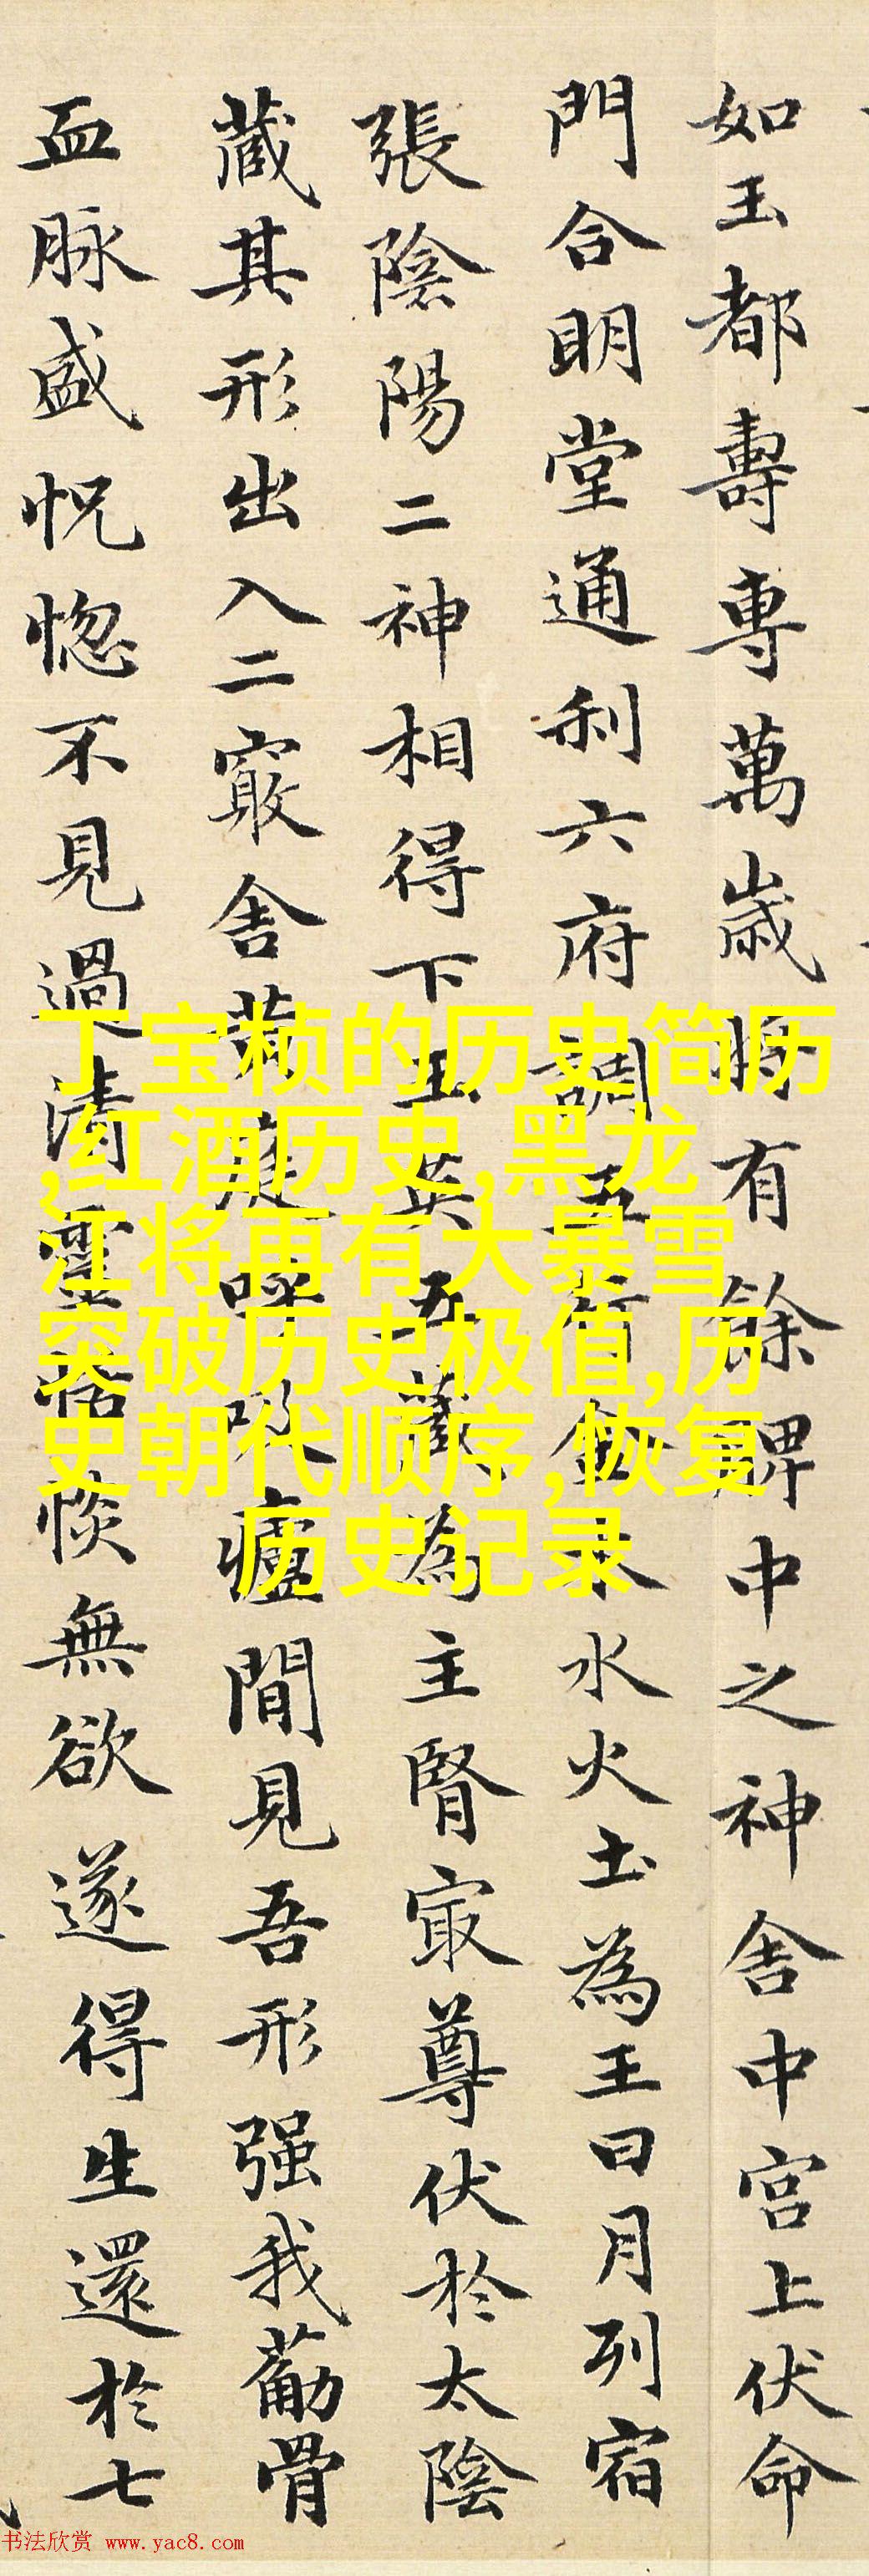 如玉都壽專萬歲將有餘脾中之神舍中宮上伏命
門合明堂通利六府調五行金木水火土為王日月列宿
張陰陽二神相得下玉英五藏為主腎寂尊伏於太陰
藏其形出入二竅舍黃庭呼吸廬間見吾形强我葪骨
血脉盛怳惚不見過清靈恬惔無欲遂得生還於七
丁宝桢的历史简历
,红酒历史,黑龙
江将再有大暴雪
突破历史极值,历
史朝代顺序,恢复
历史记录
书法欣赏 www.yac8.com